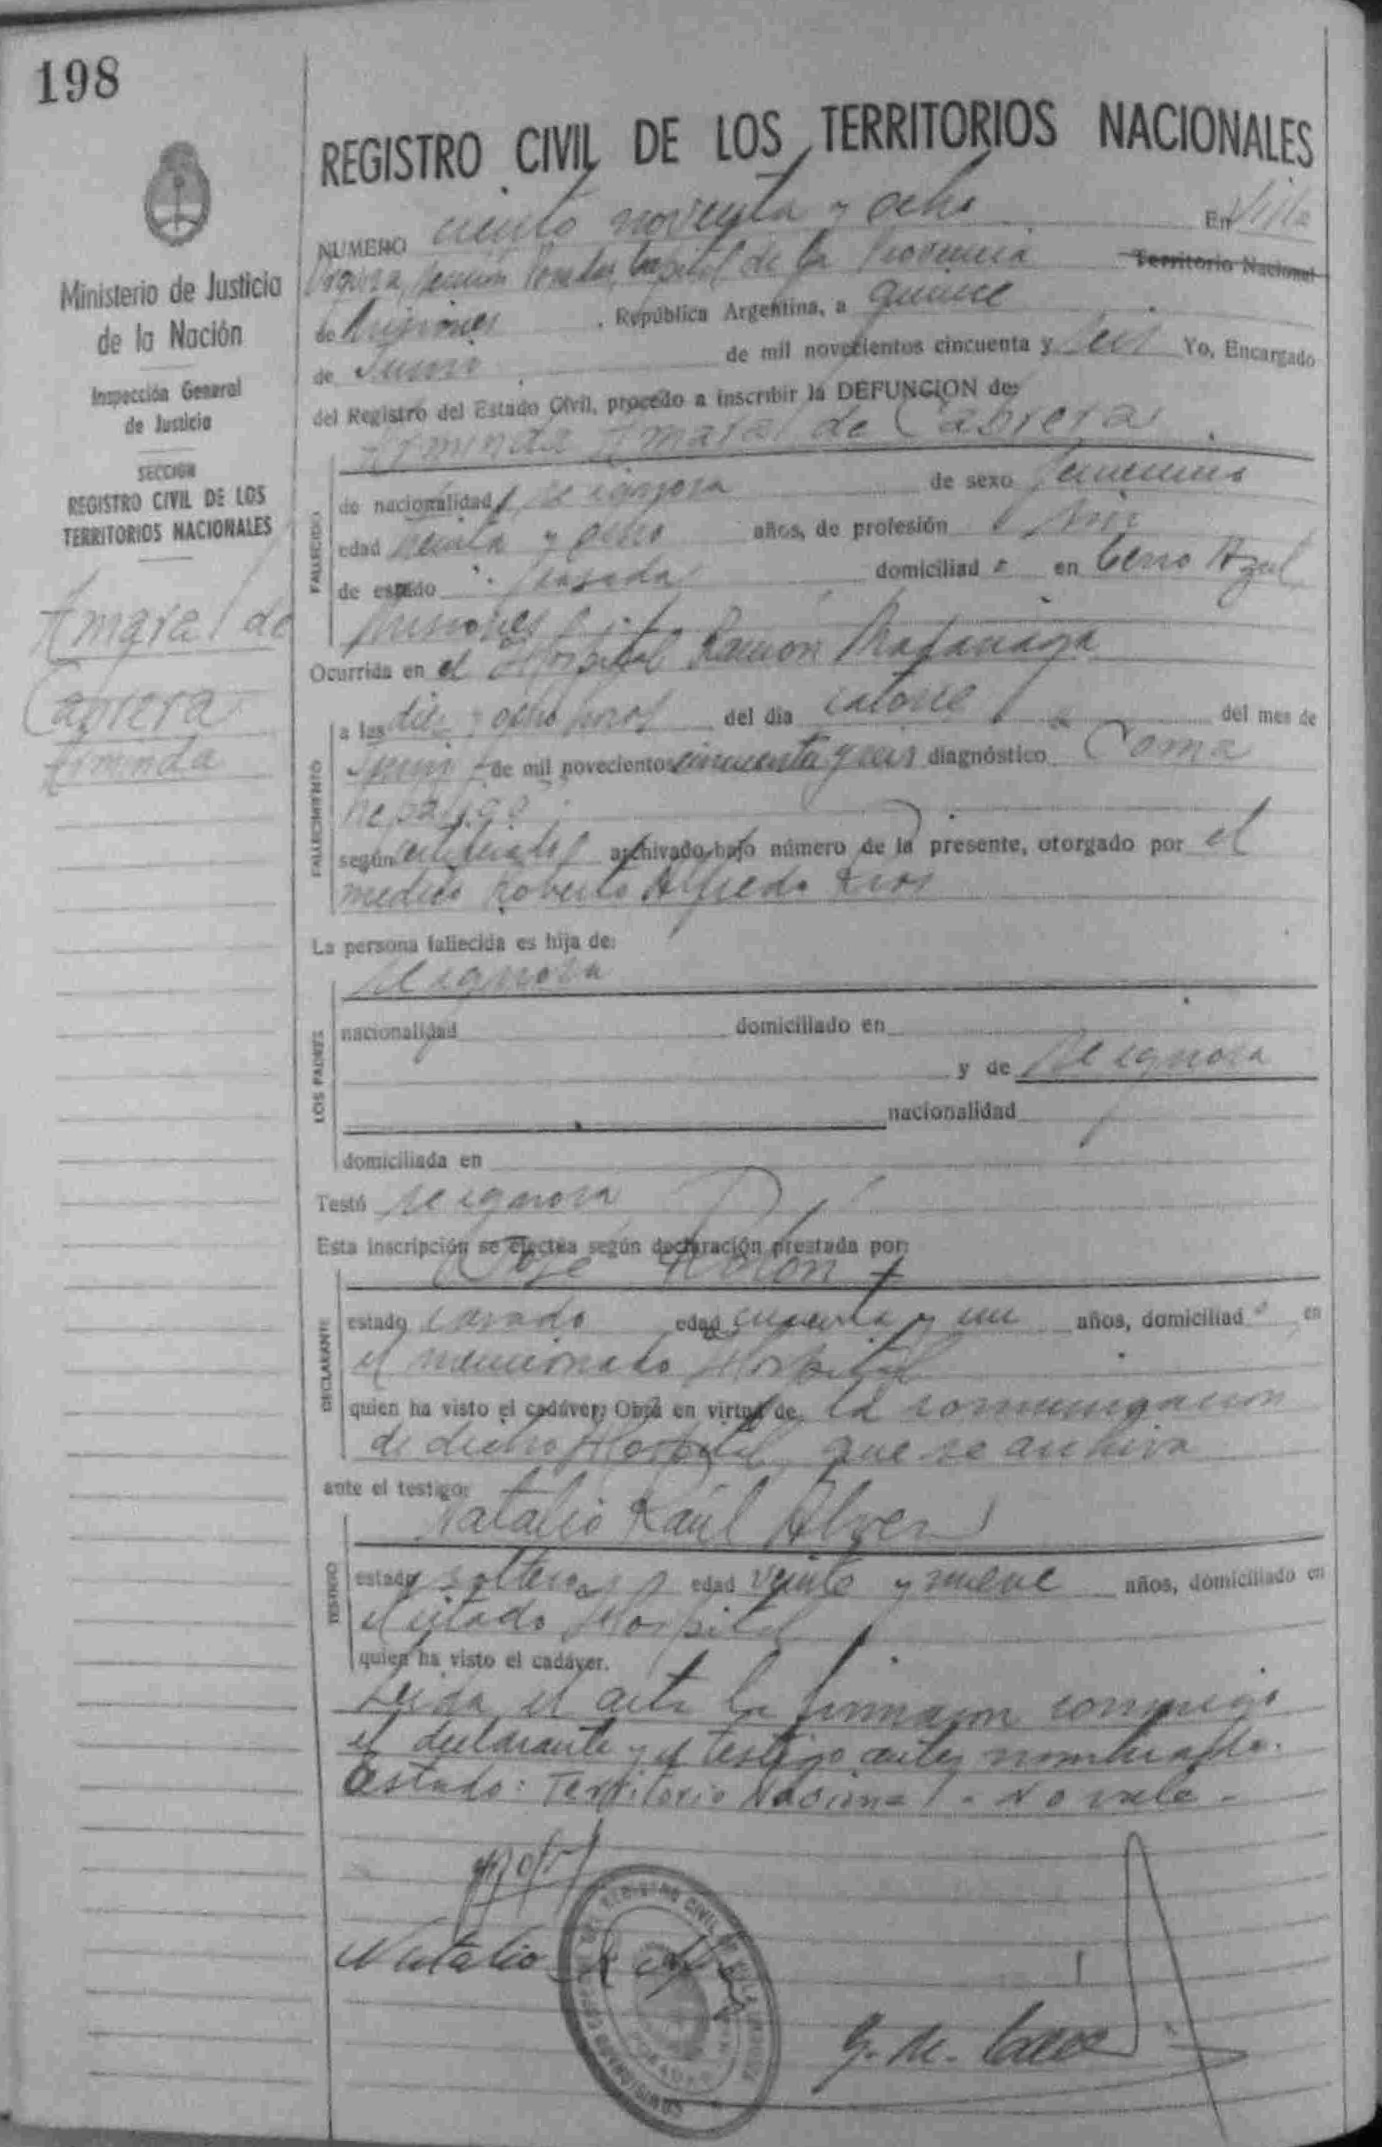 198
REGISTRO CIVIL DE LOS TERRITORIOS NACIONALES
Ministerio de Justicia
de la Nación
Inspección General
de Justicia
SECCION
REGISTRO CIVIL DE LOS
TERRITORIOS NACIONALES
Amaral de
Cabrera
Arminda
NUMERO ciento noventa y ocho En Villa
Urquiza, Posadas, Capital de la Provincia Territorio Nacional
de Misiones, República Argentina, a quince
de Junio de mil novecientos cincuenta y seis Yo, Encargado
del Registro del Estado Civil, procedo a inscribir la DEFUNCION de:
Arminda Amaral de Cabrera
FALLECIDO
de nacionalidad se ignora de sexo femenino
edad treinta y ocho años, de profesión
de estado casada domiciliada en Cerro Azul
Misiones
Ocurrida en el Hospital Ramón Madariaga
FALLECIMIENTO
a las diez y ocho horas del día catorce del mes de
Junio de mil novecientos cincuenta y seis diagnóstico Coma
hepatico
según certificado archivado bajo número de la presente, otorgado por el
medico Roberto Alfredo Rios
La persona fallecida es hija de:
Se ignora
LOS PADRES
nacionalidad domiciliado en
y de Se ignora
nacionalidad
domiciliada en
Testó se ignora
Esta inscripción se efectúa según declaración prestada por:
José Rolón
DECLARANTE
estado casado edad cuarenta y un años, domiciliado en
el mencionado Hospital
quien ha visto el cadáver; Obra en virtud de la comunicacion
de dicho Hospital, que se archiva
ante el testigo:
Natalio Raúl Alvez
TESTIGO
estado soltero edad veinte y nueve años, domiciliado en
el citado Hospital
quien ha visto el cadáver.
Leida el acta la firmaron conmigo
el declarante y el testigo antes nombrado.
Testado: Territorio Nacional - No vale -
Natalio R. Alvez
REGISTRO CIVIL
POSADAS
MISIONES
G. M.